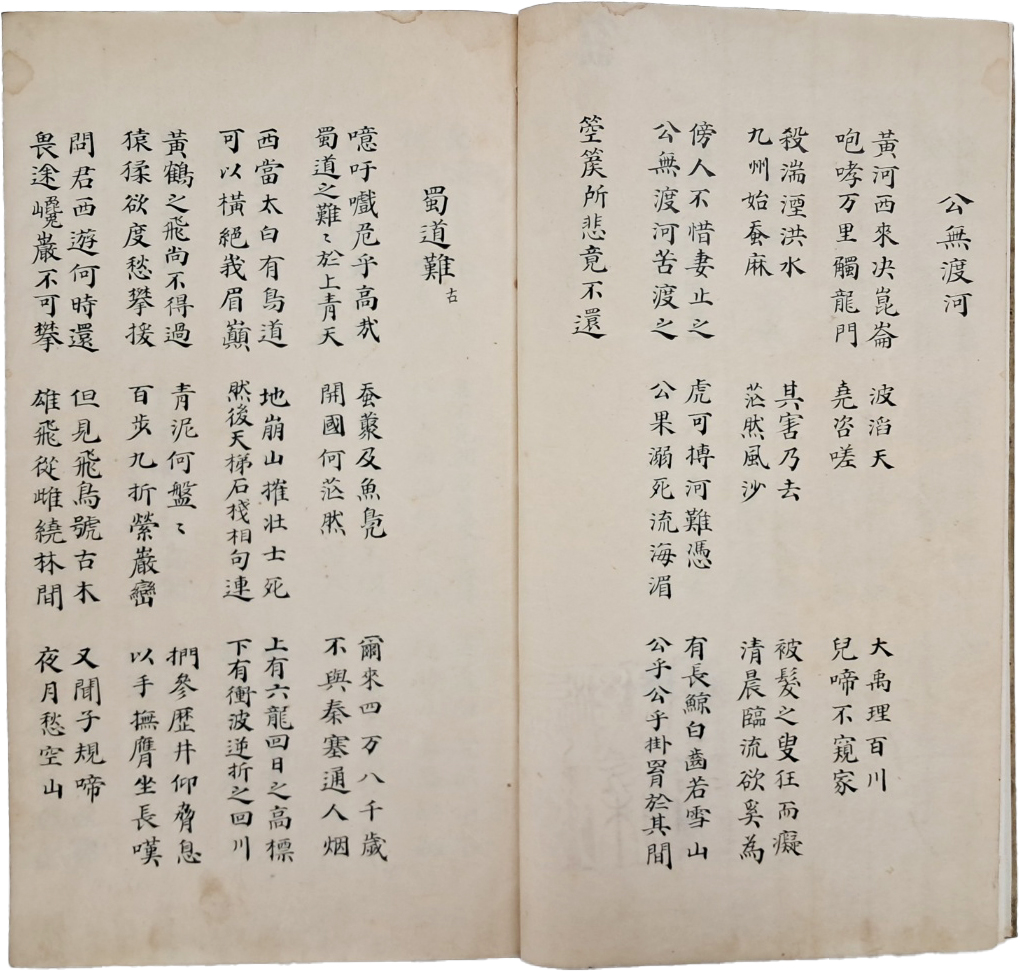 公無渡河
黃河西來决崑崙
咆哮万里觸龍門
波滔天
堯咨嗟
大禹理百川
兒啼不窺家
殺湍湮洪水
九州始蚕麻
其害乃去
茫然風沙
被髮之叟狂而癡
清晨臨流欲奚為
傍人不惜妻止之
公無渡河苦渡之
虎可搏河難憑
公果溺死流海湄
有長鯨白齒若雪山
公乎公乎掛罥於其間
箜篌所悲竟不還
蜀道難 古
噫吁嚱危乎高哉
蜀道之難〻於上青天
蚕叢及魚鳧
開國何茫然
爾來四万八千歲
不與秦塞通人烟
西當太白有鳥道
可以橫絕峩眉巔
地崩山摧壯士死
然後天梯石棧相句連
上有六龍回日之高標
下有衝波逆折之回川
黃鶴之飛尚不得過
猿猱欲度愁攀援
青泥何盤〻
百步九折縈巖巒
捫參歷井仰脅息
以手撫膺坐長嘆
問君西遊何時還
畏途巉巖不可攀
但見飛鳥號古木
雄飛從雌繞林間
又聞子規啼
夜月愁空山